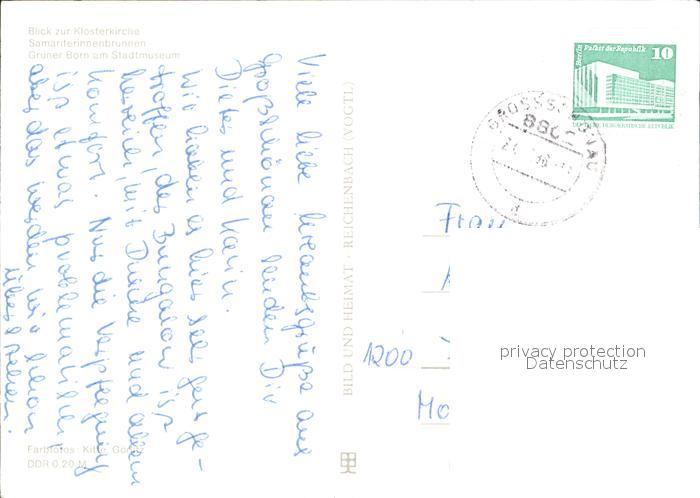 Blick zur Klosterkirche
Samariterinnenbrunnen
Grüner Born am Stadtmuseum
Viele liebe Urlaubsgrüße aus
Großschönau senden Dir
Dieter und Karin.
Wir haben es hier sehr gut ge-
troffen, der Bungalow ist
bestens, mit Dusche und allem
Komfort. Nur die Verpflegung
ist etwas problematisch,
aber das werden wir schon
überstehen.
Farbfotos: Görlitz
DDR 0,20 M
BILD UND HEIMAT · REICHENBACH (VOGTL)
Berlin Palast der Republik 10
DEUTSCHE DEMOKRATISCHE REPUBLIK
GROSSSCHÖNAU
Frau
1200
privacy protection
Datenschutz